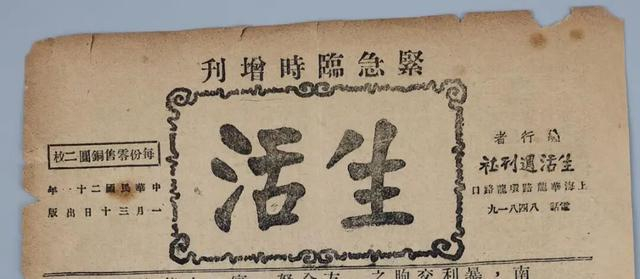 緊急臨時增刊
生活
發行者
生活週刊社
上海華龍路環龍路口
電話 八四八一九
每份零售銅圓二枚
中華民國二十一年
一月三十日出版